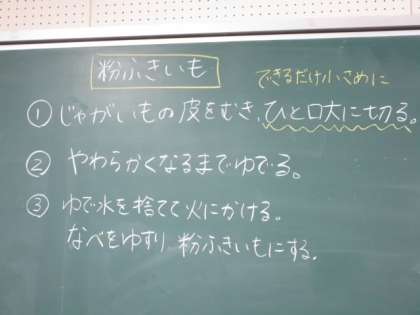 粉ふきいも
できるだけ小さめに
① じゃがいもの皮をむき、ひと口大に切る。
② やわらかくなるまでゆでる。
③ ゆで水を捨てて火にかける。
なべをゆすり粉ふきいもにする。